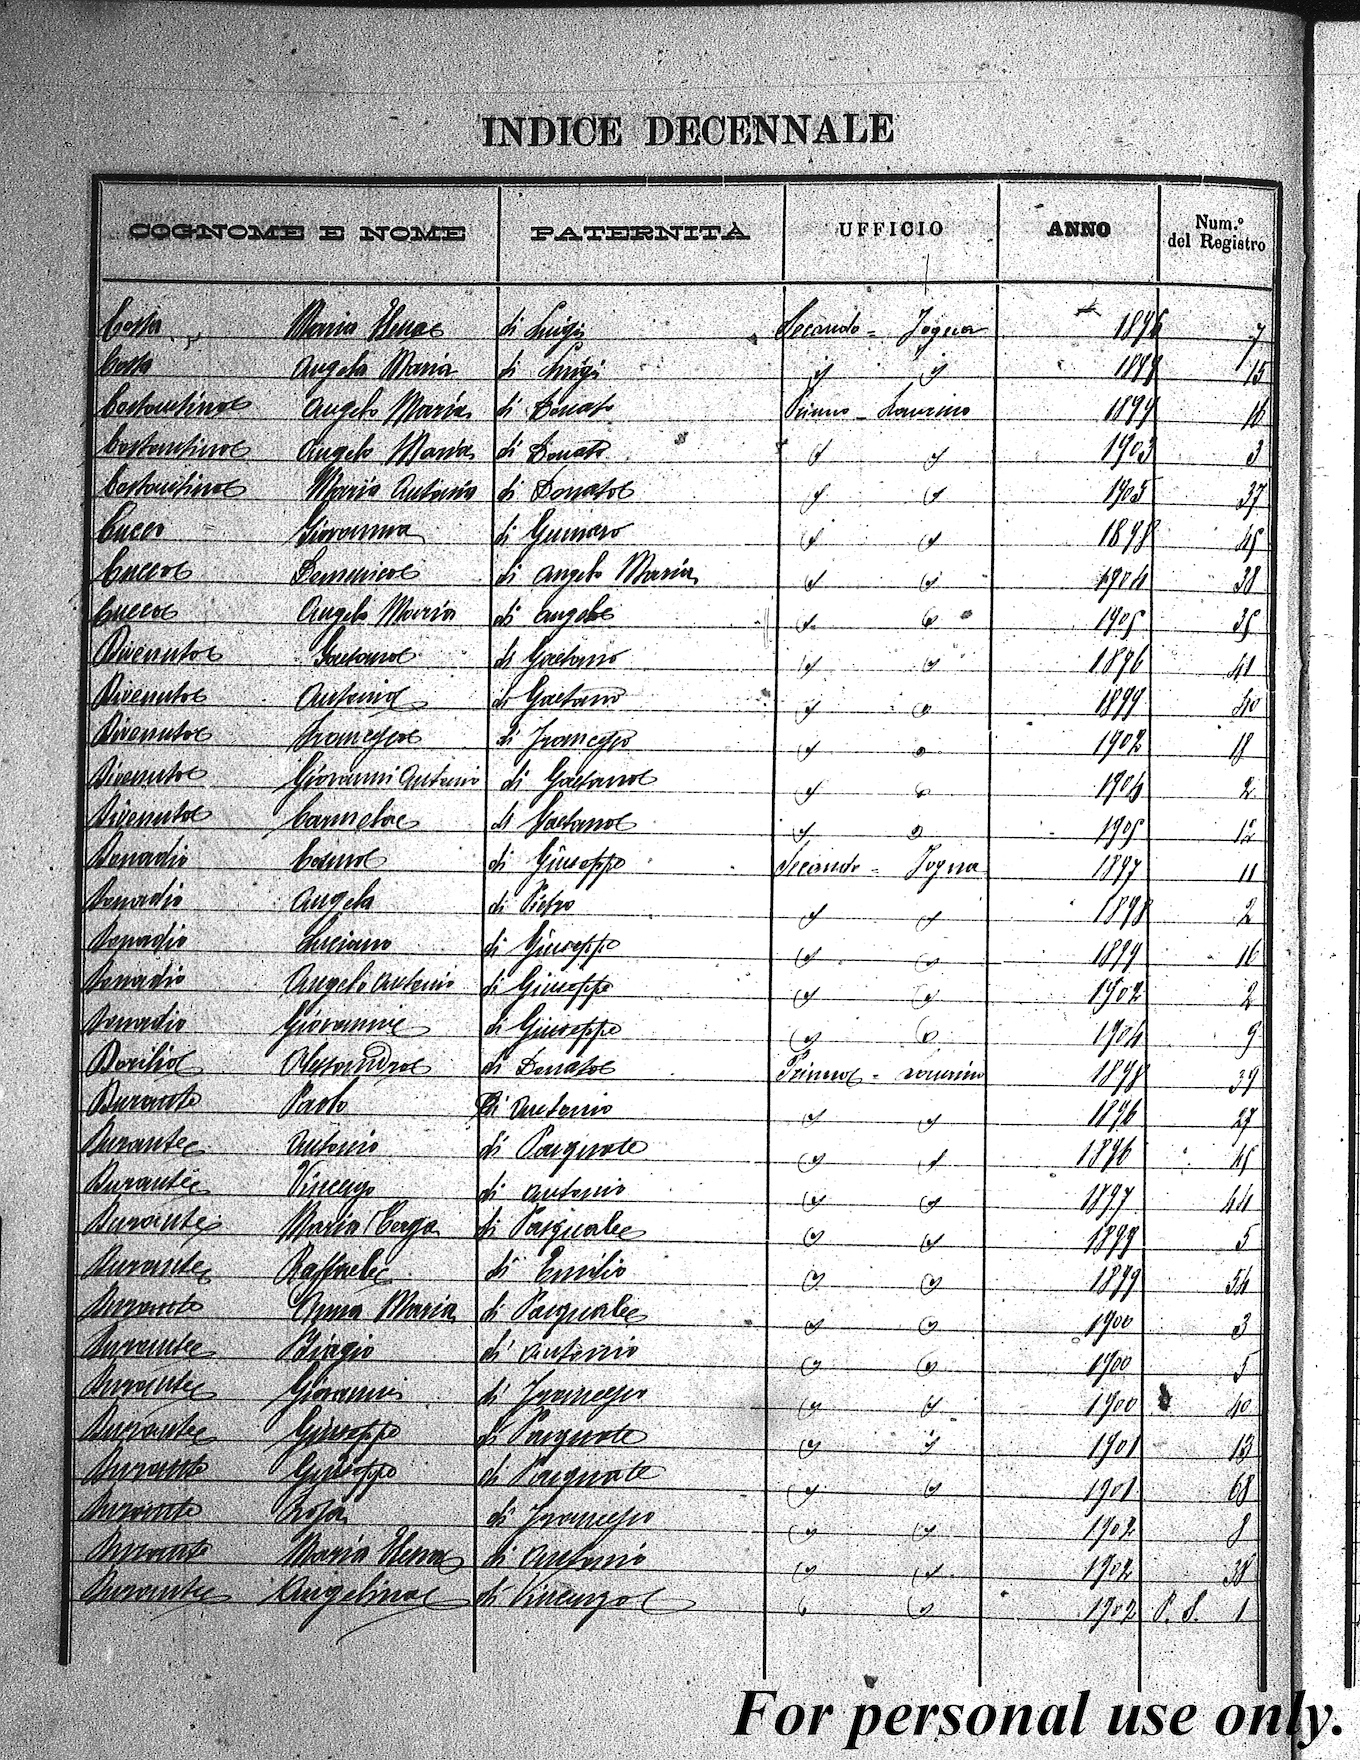 INDICE DECENNALE
COGNOME E NOME PATERNITÀ UFFICIO ANNO Num.º del Registro
Costa Maria Elena di Luigi Secondo = Fogna 1896 7
Costa Angela Maria di Luigi " " 15
Costantino Angelo Maria di Donato Primo = Laurino 1899 16
Costantino Angelo Maria di Donato " " 1903 3
Costantino Maria Antonia di Donato " " 1905 37
Cucco Giovanna di " " 1898 45
Cucco Domenico di Angelo Maria " " 1904 38
Cucco Angelo Maria di Angelo " " 1905 35
Divenuto Gaetano di Gaetano " " 1896 41
Divenuto Antonio di Gaetano " " 1899 40
Divenuto Francesco di Francesco " " 1902 18
Divenuto Giovanni Antonio di Gaetano " " 1904 2
Divenuto Carmela di Gaetano " " 1905 12
Donadio Cosimo di Giuseppe Secondo = Fogna 1897 11
Donadio Angela di Pietro " " 1898 2
Donadio Luciano di Giuseppe " " 1899 16
Donadio Angelo Antonio di Giuseppe " " 1902 2
Donadio Giovanni di Giuseppe " " 1904 9
Alessandro di Donato Primo = Laurino 1898 39
Durante Paolo di Antonio " " 1896 27
Durante Antonio di Pasquale " " 1896 45
Durante Vincenzo di Antonio " " 1897 44
Durante Maria di Pasquale " " 1899 5
Durante Raffaele di Emilio " " 1899 54
Durante Anna Maria di Pasquale " " 1900 3
Durante Biagio di Antonio " " 1900 5
Durante Giovanni di Francesco " " 1900 40
Durante Giuseppe di Pasquale " " 1901 13
Durante Giuseppe di Pasquale " " 1901 68
Durante Rosa di Francesco " " 1902 8
Durante Maria Elena di Antonio " " 1902 38
Durante Angelina di Vincenzo " " 1902 P. S. 1
For personal use only.